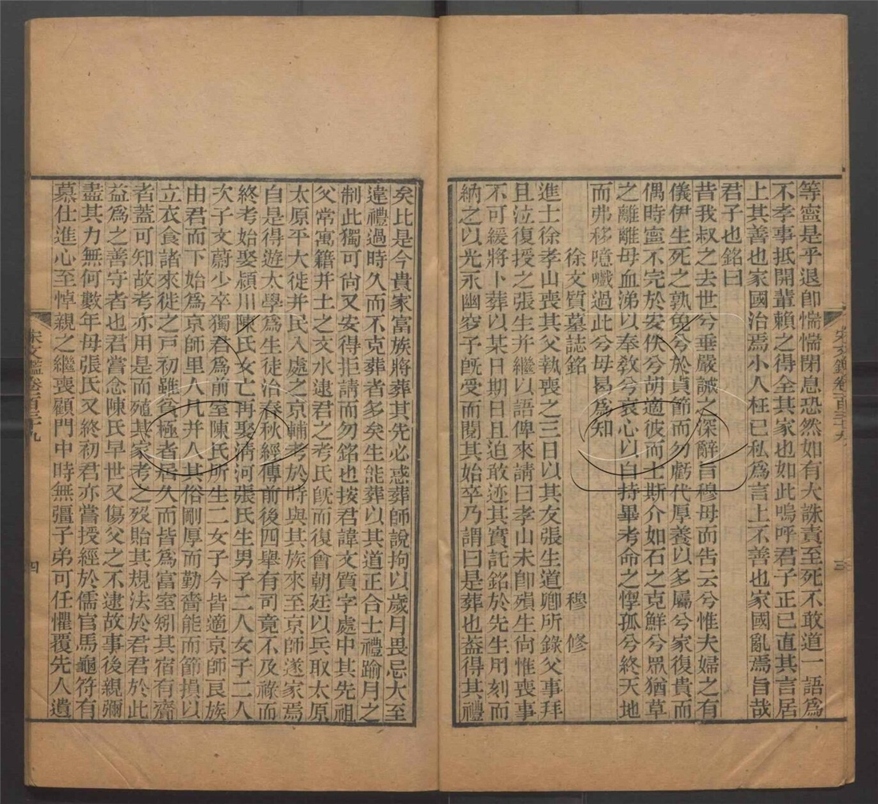 等寧是乎退卽惴惴閉息恐然如有大誅責至死不敢道一語爲
不孝事抵開輩賴之得全其家也如此嗚呼君子正已直其言居
上其善也家國治焉小人枉已私爲言上不善也家國亂焉旨哉
君子也銘曰
昔我叔之去世兮垂嚴誠之深辭旨穆母而告云兮惟夫婦之有
儀伊生死之孰免兮於貞節而勿虧代厚養以多屬兮家復貴而
偶時寧不完於安佚兮胡適彼而士斯介如石之克鮮兮眾猶草
之離離母血涕以奉敎兮哀心以自持畢考命之惸孤兮終天地
而弗移噫嚱過此兮毋曷爲知
徐文質墓誌銘 穆修
進士徐孝山喪其父執喪之三日以其友張生道卿所錄父事拜
且泣復授之張生幷繼以語俾來請曰孝山未卽殞生尙惟喪事
不可緩將卜葬以某日期日且迫敢迹其實託銘於先生用刻而
納之以光永幽窆予旣受而閱其始卒乃謂曰是葬也蓋得其禮
宋文鑑卷一百三十九
三
矣比是今貴家富族將葬其先必惑葬師說拘以歲月畏忌大至
違禮過時久而不克葬者多矣生能葬以其道正合士禮踰月之
制此獨可尙又安得拒請而勿銘也按君諱文質字處中其先祖
父常寓籍幷土之文水逮君之考氏旣而復會朝廷以兵取太原
太原平大徙幷民入處之京輔考於時與其族來至京師遂家焉
自是得遊太學爲生徒治春秋經傳前後四舉有司竟不及祿而
終考始娶潁川陳氏女亡再娶淸河張氏生男子二人女子二人
次子文蔚少卒獨君爲前室陳氏所生二女子今皆適京師良族
由君而下始爲京師里人凡幷人其俗剛厚而勤嗇能而節損以
立衣食諸來徙之戸初雖貧極者居久而皆爲富室矧其宿有齋
者蓋可知故考亦用是而殖其家考之歿貽其規法於君君於此
益爲之善守者也君嘗念陳氏早世又傷父之不逮故事後親彌
盡其力無何數年母張氏又終初君亦嘗授經於儒官馬龜符有
慕仕進心至悼親之繼喪顧門中時無彊子弟可任懼覆先人遺
宋文鑑卷一百三十九
四